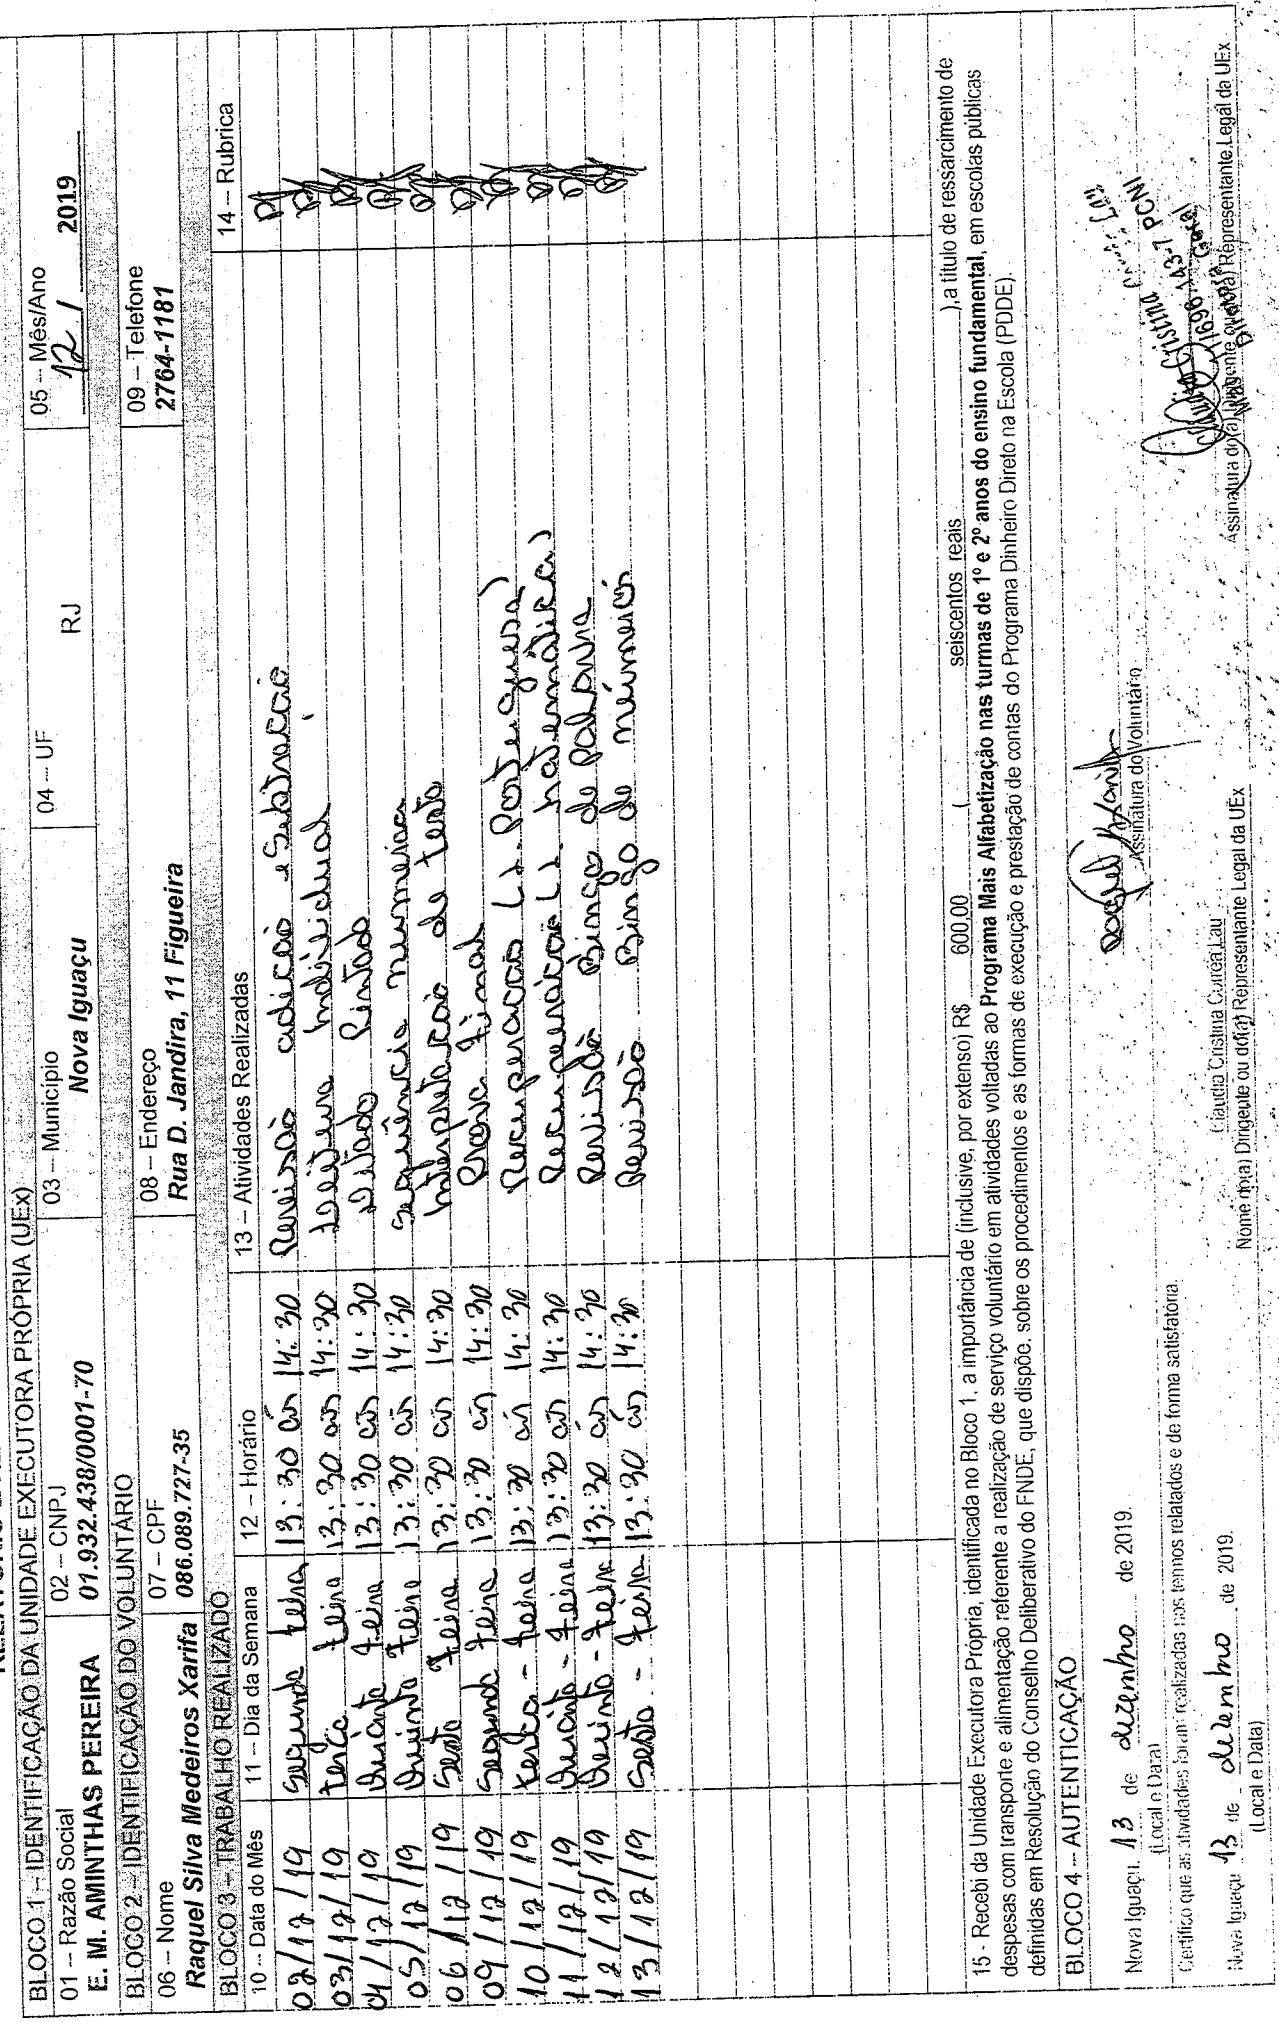 BLOCO 1 – IDENTIFICAÇÃO DA UNIDADE EXECUTORA PRÓPRIA (UEx)
01 – Razão Social 02 – CNPJ 03 – Município 04 – UF 05 – Mês/Ano
E. M. AMINTHAS PEREIRA 01.932.438/0001-70 Nova Iguaçu RJ 12 / 2019
BLOCO 2 – IDENTIFICAÇÃO DO VOLUNTÁRIO
06 – Nome 07 – CPF 08 – Endereço 09 – Telefone
Raquel Silva Medeiros Xarifa 086.089.727-35 Rua D. Jandira, 11 Figueira 2764-1181
BLOCO 3 – TRABALHO REALIZADO
10 – Data do Mês 11 – Dia da Semana 12 – Horário 13 – Atividades Realizadas 14 – Rubrica
02/12/19 Segunda feira 13:30 ás 14:30 Revisão adição e Subtração
03/12/19 terça feira 13:30 as 14:30 Leitura Individual
04/12/19 Quarta feira 13:30 ás 14:30 Ditado Pintado
05/12/19 Quinta Feira 13:30 ás 14:30 Sequência numerica
06/12/19 Sexta Feira 13:30 ás 14:30 Interpretação de texto
09/12/19 Segunda Feira 13:30 ás 14:30 Prova Final
10/12/19 terça - feira 13:30 ás 14:30 Recuperação (L. Portuguesa)
11/12/19 Quarta - Feira 13:30 ás 14:30 Recuperação (L. matemática)
12/12/19 Quinta - Feira 13:30 ás 14:30 Revisão Bingo de Palavra
13/12/19 Sexta - feira 13:30 ás 14:30 Revisão Bingo de números
15 - Recebi da Unidade Executora Própria, identificada no Bloco 1, a importância de (inclusive, por extenso) R$ 600,00 ( seiscentos reais ),a título de ressarcimento de
despesas com transporte e alimentação referente a realização de serviço voluntário em atividades voltadas ao Programa Mais Alfabetização nas turmas de 1º e 2º anos do ensino fundamental, em escolas públicas
definidas em Resolução do Conselho Deliberativo do FNDE, que dispõe. sobre os procedimentos e as formas de execução e prestação de contas do Programa Dinheiro Direto na Escola (PDDE).
BLOCO 4 – AUTENTICAÇÃO
Nova Iguaçu, 13 de dezembro de 2019.
(Local e Data) Assinatura do Voluntário
Certifico que as atividades foram realizadas nos termos relatados e de forma satisfatória.
Nova Iguaçu 13 de dezembro de 2019. Claudia Cristina Corrêa Lau
(Local e Data) Nome do(a) Dirigente ou do(a) Representante Legal da UEx Assinatura do(a) Dirigente ou do(a) Representante Legal da UEx